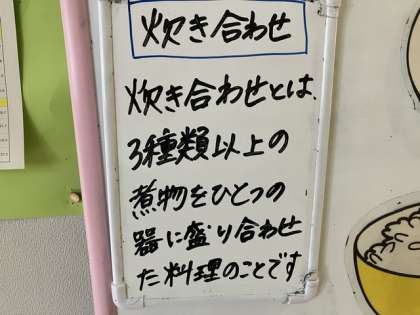 炊き合わせ
炊き合わせとは、
3種類以上の
煮物をひとつの
器に盛り合わせ
た料理のことです